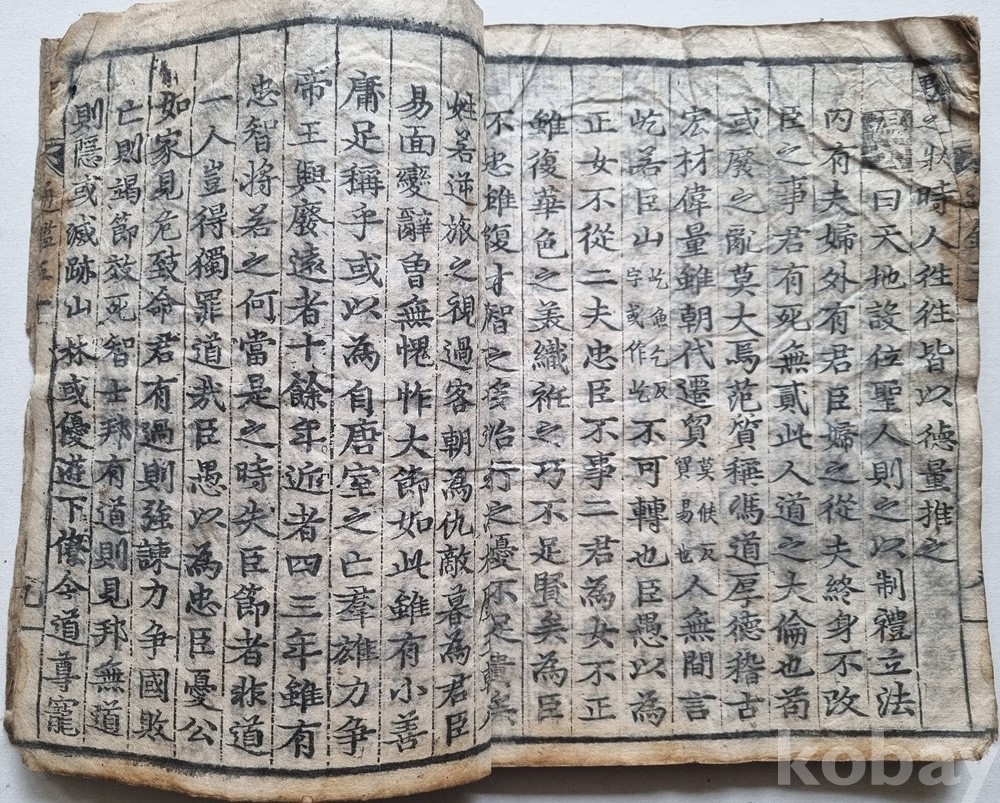 之狀時人徃徃皆以德量推之
曰天地設位聖人則之以制禮立法
內有夫婦外有君臣婦之從夫終身不改
臣之事君有死無貳此人道之大倫也苟
或廢之亂莫大焉范質稱馮道厚德稽古
宏材偉量雖朝代遷貿莫候反貿易也人無間言
屹若臣山屹魚乞反字或作屹不可轉也臣愚以為
正女不從二夫忠臣不事二君為女不正
雖復華色之美織袵之巧不足賢矣為臣
不忠雖復才智之治行之優不足貴矣
姓名逆旅之視過客朝為仇敵暮為君臣
易面變辭曾無愧怍大節如此雖有小善
庸足稱乎或以為自唐室之亡羣雄力爭
帝王興廢遠者十餘年近者四三年雖有
忠智將若之何當是之時失臣節者非道
一人豈得獨罪道哉臣愚以為忠臣憂公
如家見危致命君有過則強諫力爭國敗
亡則竭節效死智士邦有道則見邦無道
則隱或滅跡山林或優遊下僚今道尊寵
通鑑五
九
kobay